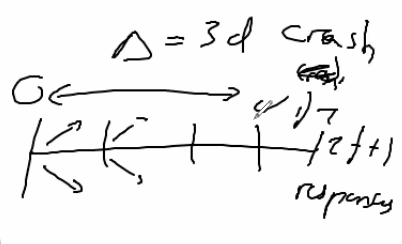 Δ = 3d crash
0
2f+1
responses